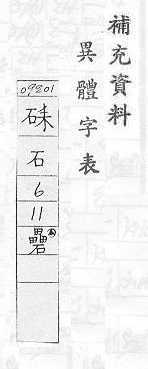 補充資料
異體字表
09801
石
6
11